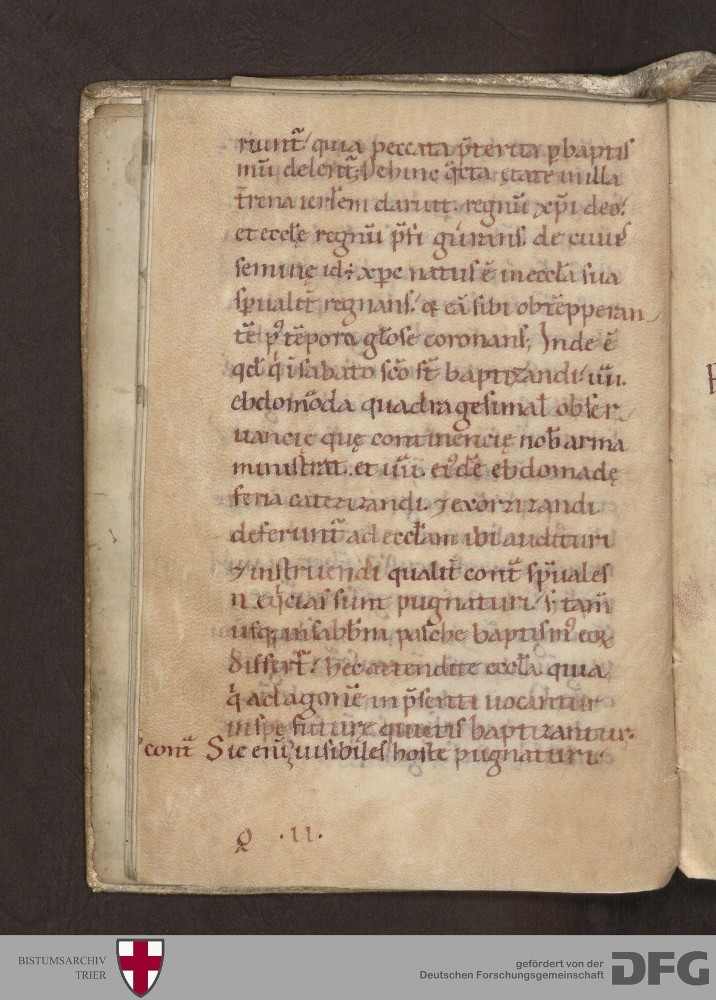 riunt᷑. quia peccata p̄terita ꝑ baptis
mū delent᷑. Dehinc q̄rta ętate in illa
t̄rena ierl̄em claruit. regnū xp̄i deo.
et eccl̄ę regnū p̄fi gurans. de cuius
seminę id÷ xp̄c natus ē in eccl̄a sua
sp̄ualit̄ regnans. & eā sibi obtēpperan
tē p᷒ tēpora gl̄ose coronans; Inde ē
qd̄ q̄ i sabato sc̄o st̄ baptizandi. iiii.
ebdomōda quadragesimal̄ obser
uancię quę continencię nob̄ arma
ministrat. et iiii. ei᷒dē ebdomadę
feria catezizandi. ⁊ exorzizandi
deferunt᷑ ad eccl̄am ibi audituri
⁊ instruendi qualit̄ cont̄ sp̄uales
neq̄cias sunt pugnaturi. s; tam̄
usq; in sabb̄m pasche baptism᷒ eoꝝ
differt᷑. Hęc attendite eccl̄a quia
q̄ ad agonē in p̄senti uocantur
in spę futurę quietis baptizantur.
cont᷑ Sic enī uisibiles hoste pugnaturi.
Q .II.
BISTUMSARCHIV
TRIER
gefördert von der
Deutschen Forschungsgemeinschaft
DFG